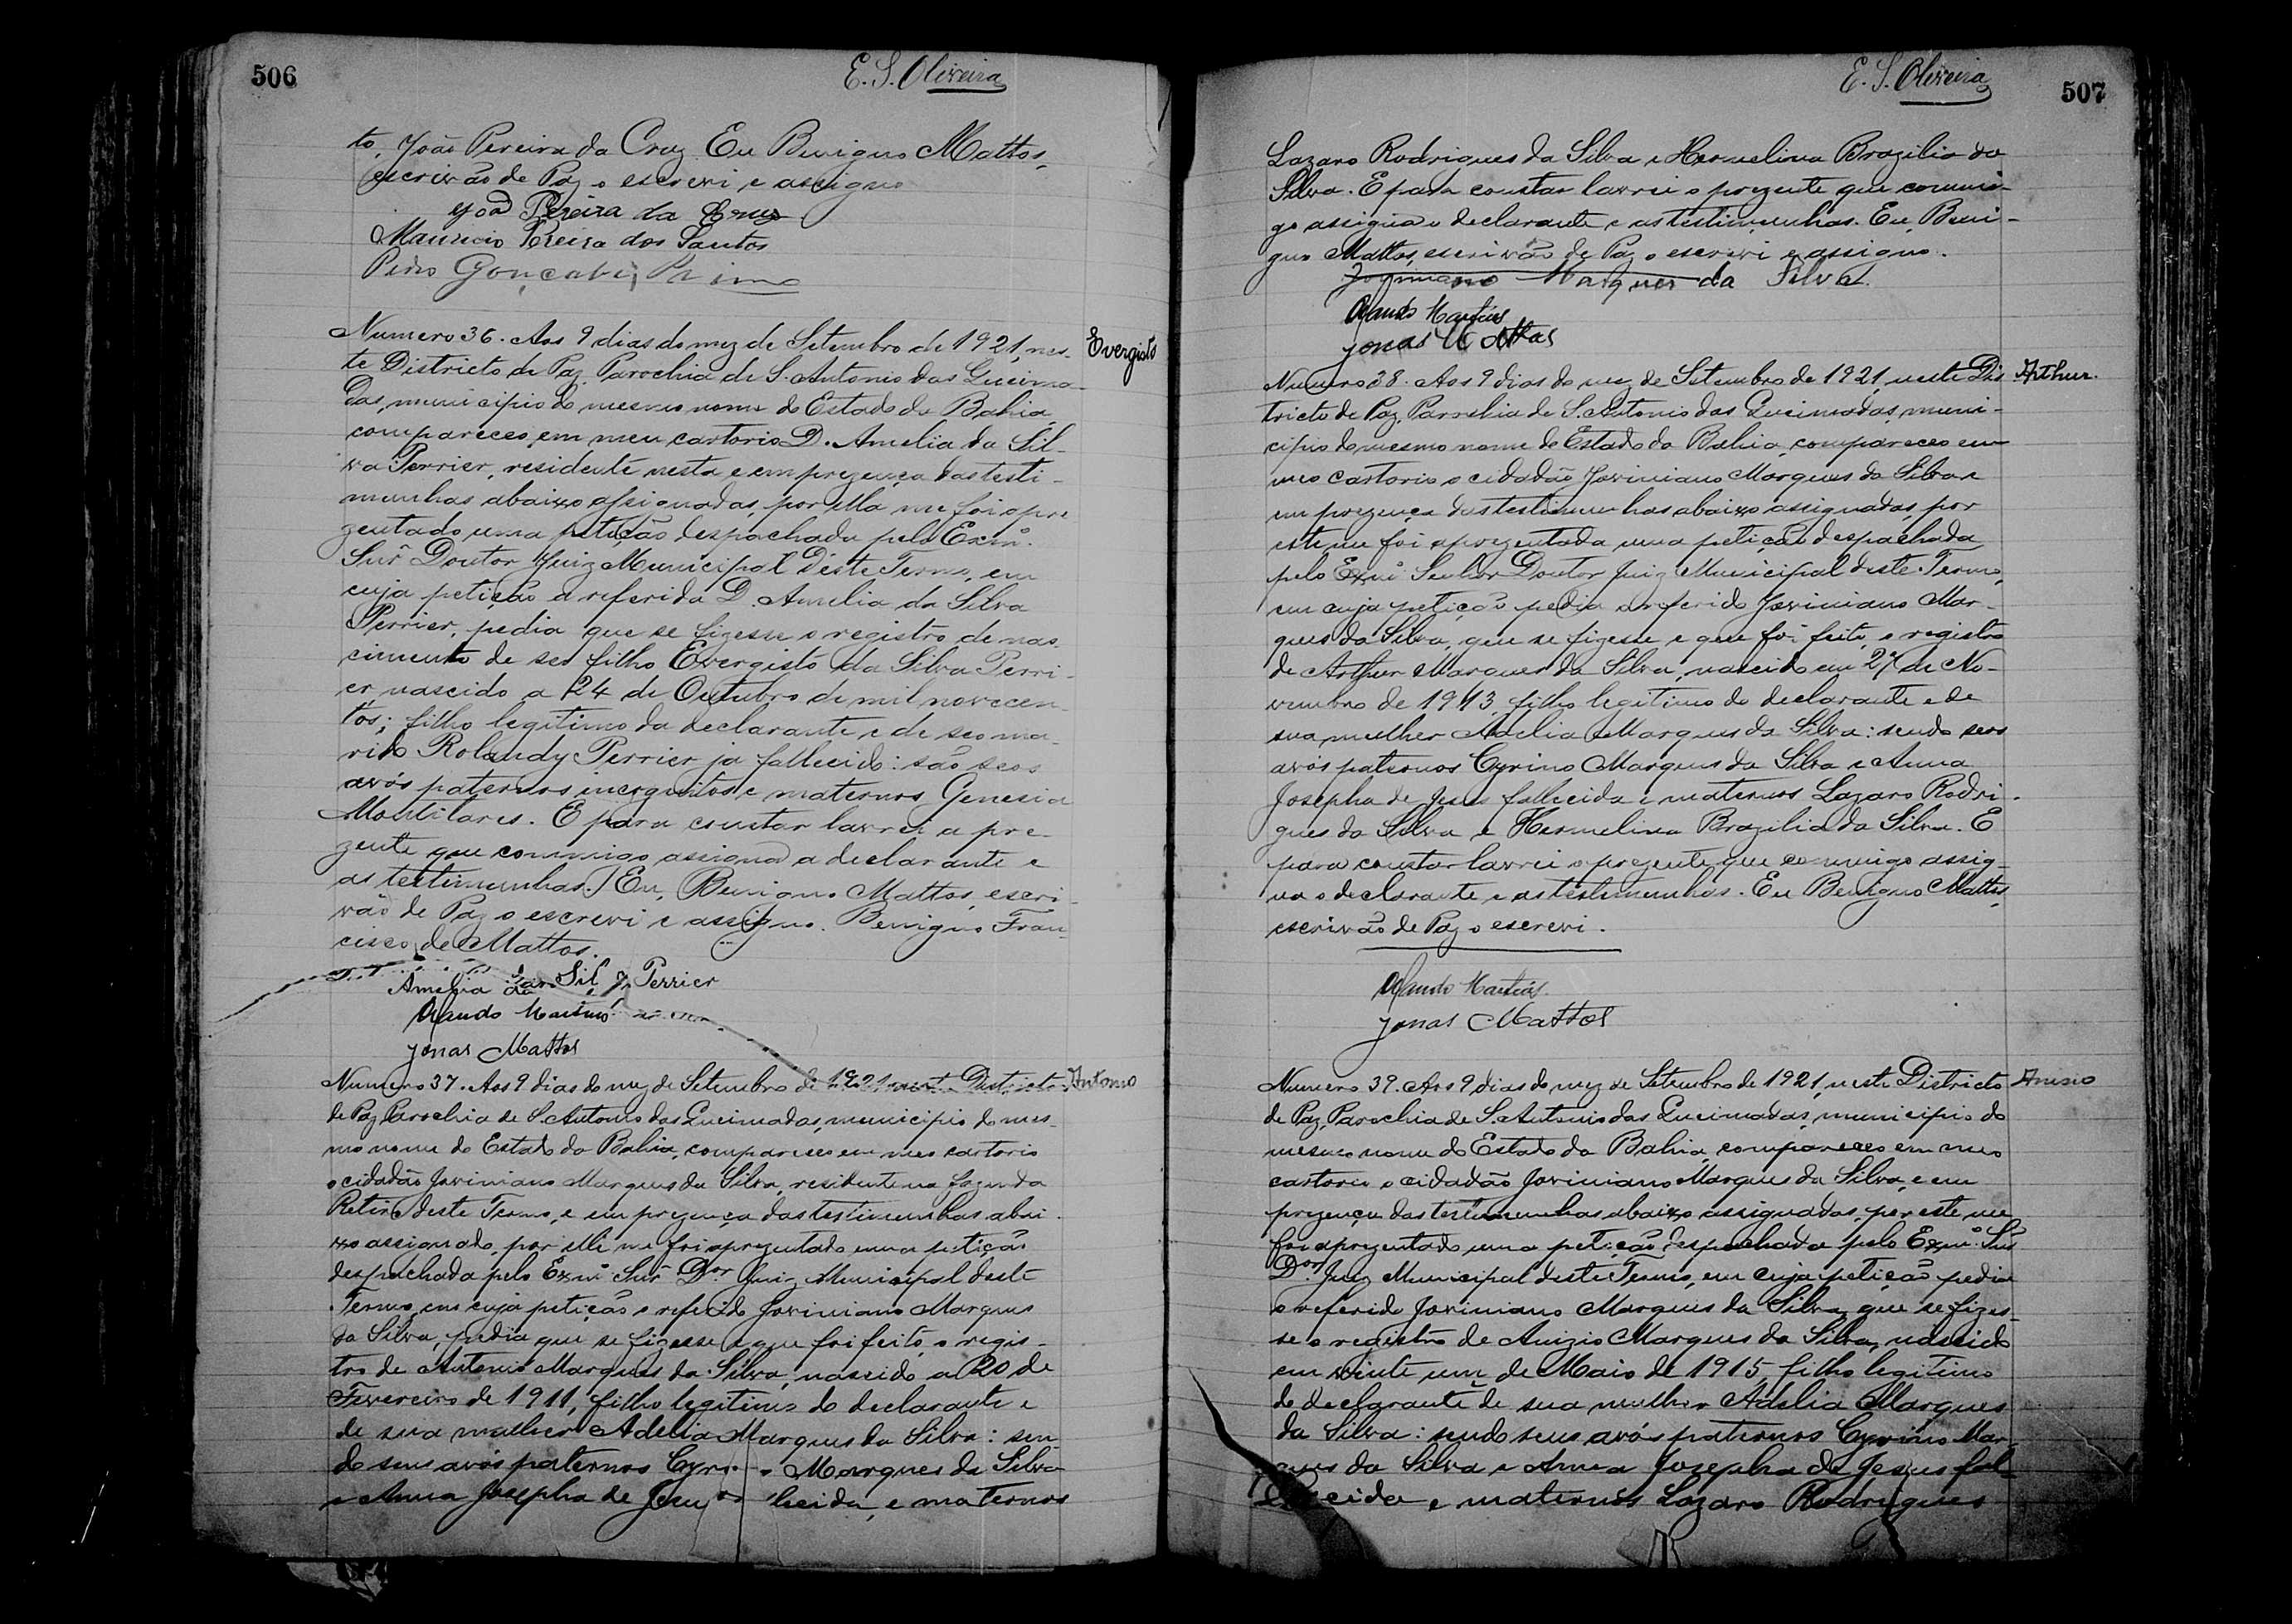 506
E. S. Oliveira
to, João Pereira da Cruz. Eu Benigno Mattos,
escrivão de Paz o escrevi e assigno
João Pereira da Cruz
Mauricio Pereira dos Santos
Pedro Gonçalves Primo
Numero 36. Aos 9 dias do mez de Setembro de 1921, nes-
Evergisto
te Districto de Paz, Parochia de S. Antonio das Queima-
das, municipio do mesmo nome do Estado da Bahia,
compareceo em meu cartorio D. Amelia da Sil-
va Perrier, residente nesta e em prezença das testi-
munhas abaixo assignadas, por ella me foi apre
zentado uma petição despachada pelo Exmº.
Snr Doutor Juiz Municipal d'este Termo, em
cuja petição a referida D. Amelia da Silva
Perrier, pedia que se fizesse o registro de nas-
cimento de seo filho Evergisto da Silva Perri-
er nascido a 24 de Outubro de mil novecen-
tos; filho legitimo da declarante e de seo ma-
rido Rolandy Perrier ja fallecido: são seos
avós paternos incognitos e maternos Genesia
Montilares. E para constar lavrei a pre-
zente que commigo assigna a declarante e
as testimunhas. Eu, Benigno Mattos, escri-
vão de Paz o escrevi e assigno. Benigno Fran-
cisco de Mattos.
Amelia da Silva Perrier
Jonas Mattos
Numero 37. Aos 9 dias do mez de Setembro de 1921 neste Districto
Antonio
de Paz, Parochia de S. Antonio das Queimadas, municipio do mes-
mo nome do Estado da Bahia, compareceo em meo cartorio
o cidadão Joviniano Marques da Silva, residente na fazenda
Retiro deste Termo, e em prezença das testimunhas abai-
xo assignado, por elle me foi aprezentado uma petição
despachada pelo Exmº Snr Dor Juiz Municipal deste
Termo, em cuja petição o referido Joviniano Marques
da Silva, pedia que se fizesse e que foi feito, o regis-
tro de Antonio Marques da Silva, nascido a 20 de
Fevereiro de 1911, filho legitimo do declarante e
de sua mulher Adelia Marques da Silva: sen-
do seus avós paternos Cyrino Marques da Silva
e Anna Josepha de Jesus fallecida, e maternos
E. S. Oliveira
507
Lazaro Rodrigues da Silva e Hermelina Brazilia da
Silva. E para constar lavrei o prezente que commi-
go assigna o declarante e as testimunhas. Eu, Beni-
gno Mattos, escrivão de Paz o escrevi e assigno.
Joviniano Marques da Silva
Jonas Mattos
Numero 38. Aos 9 dias do mez de Setembro de 1921, neste Dis
Arthur.
tricto de Paz, Parochia de S. Antonio das Queimadas, muni-
cipio do mesmo nome do Estado da Bahia, compareceo em
meo cartorio o cidadão Joviniano Marques da Silva e
em prezença das testimunhas abaixo assignadas, por
este me foi aprezentada uma petição despachada
pelo Exmº Senhor Doutor Juiz Municipal deste Termo,
em cuja petição pedia o referido Joviniano Mar-
ques da Silva, que se fizesse e que foi feito, o registro
de Arthur Marques da Silva, nascido em 27 de No-
vembro de 1913, filho legitimo do declarante e de
sua mulher Adelia Marques da Silva: sendo seos
avós paternos Cyrino Marques da Silva e Anna
Josepha de Jesus fallecida e maternos Lazaro Rodri-
gues da Silva e Hermelina Brazilia da Silva. E
para constar lavrei o prezente que commigo assig-
na o declarante e as testimunhas. Eu Benigno Mattos,
escrivão de Paz o escrevi.
Jonas Mattos
Numero 39. Aos 9 dias do mez de Setembro de 1921, neste Districto
Anisio
de Paz, Parochia de S. Antonio das Queimadas, municipio do
mesmo nome do Estado da Bahia, compareceo em meo
cartorio o cidadão Joviniano Marques da Silva, e em
prezença das testimunhas abaixo assignadas, por este me
foi aprezentado uma petição despachada pelo Exmº Snr
Dor Juiz Municipal deste Termo, em cuja petição pedia
o referido Joviniano Marques da Silva, que se fizes-
se o registro de Anizio Marques da Silva, nascido
em vinte um de Maio de 1915, filho legitimo
do declarante de sua mulher Adelia Marques
da Silva: sendo seus avós paternos Cyrino Mar-
ques da Silva e Anna Josepha de Jesus fal-
lecida e maternos Lazaro Rodrigues